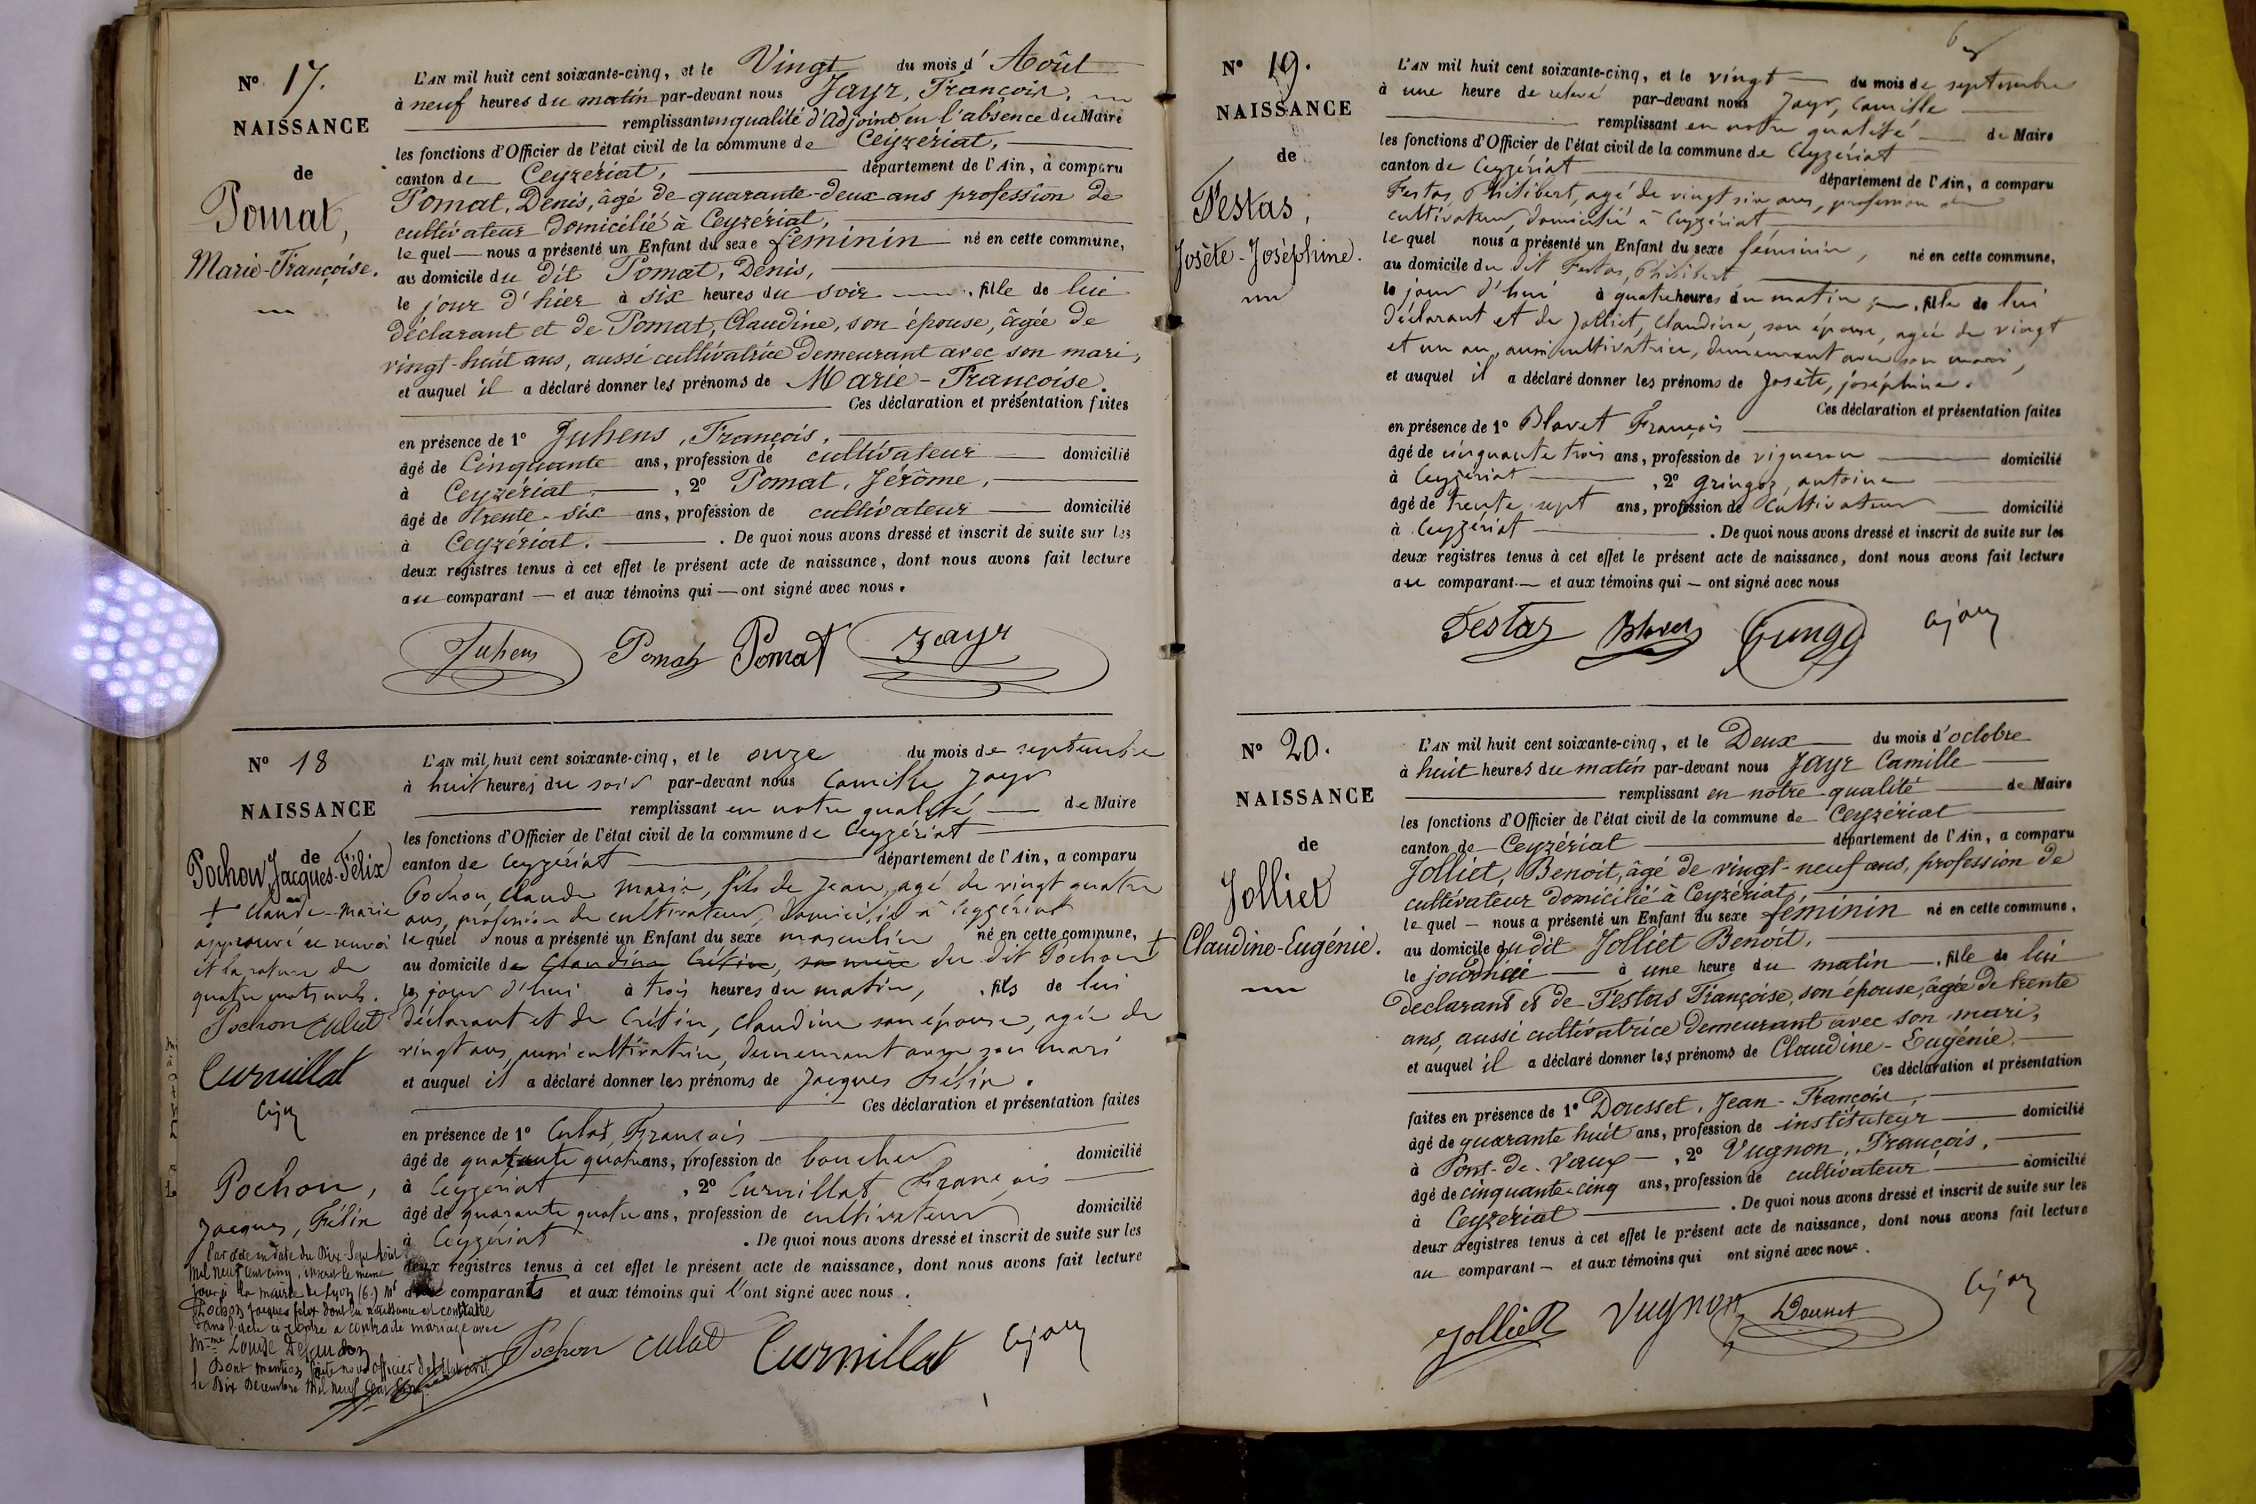 N° 17.
NAISSANCE
de
Pomat,
Marie-Françoise.
L'AN mil huit cent soixante-cinq, et le Vingt du mois d'Août
à neuf heures du matin par-devant nous Jayr, François,
remplissant en qualité d'Adjoint en l'absence du Maire
les fonctions d'Officier de l'état civil de la commune de Ceyzériat,
canton de Ceyzériat, département de l'Ain, à comparu
Pomat, Denis, âgé de quarante-deux ans profession de
cultivateur domicilié à Ceyzériat,
le quel nous a présenté un Enfant du sexe féminin né en cette commune,
au domicile du dit Pomat, Denis,
le jour d'hier à six heures du soir, fille de lui
déclarant et de Pomat, Claudine, son épouse, âgée de
vingt-huit ans, aussi cultivatrice demeurant avec son mari,
et auquel il a déclaré donner les prénoms de Marie-Françoise.
Ces déclaration et présentation faites
en présence de 1° Juhens, François,
âgé de Cinquante ans, profession de cultivateur domicilié
à Ceyzériat, 2° Pomat, Jérôme,
âgé de trente-six ans, profession de cultivateur domicilié
à Ceyzériat. De quoi nous avons dressé et inscrit de suite sur les
deux registres tenus à cet effet le présent acte de naissance, dont nous avons fait lecture
au comparant et aux témoins qui ont signé avec nous.
Juhens Pomat Pomat Jayr
N° 18
NAISSANCE
de
Pochon, Jacques-Félix
+ Claude-Marie
approuvé ce renvoi
et la rature de
quatre mots nuls.
Pochon Culat
Curnillat
Pochon,
Jacques, Félix
Par acte en date du Dix-Sept Avril
Mil neuf cent cinq, inscrit le même
jour à la mairie de Lyon (6e) Mr
Pochon Jacques Félix dont la naissance est constatée
dans l'acte ci-contre a contracté mariage avec
Mme Louise
Dont mention faite nous officier de l'état civil
le Dix Décembre Mil neuf cent cinq.
L'AN mil huit cent soixante-cinq, et le onze du mois de septembre
à huit heures du soir par-devant nous Camille Jayr
remplissant en notre qualité de Maire
les fonctions d'Officier de l'état civil de la commune de Ceyzériat
canton de Ceyzériat département de l'Ain, a comparu
Pochon, Claude Marie, fils de Jean, agé de vingt quatre
ans, profession de cultivateur, domicilié à Ceyzériat
le quel nous a présenté un Enfant du sexe masculin né en cette commune,
au domicile de Claudine Crétin, sa mère du dit Pochon +
le jour d'hui à trois heures du matin, fils de lui
déclarant et de Crétin, Claudine son épouse, agée de
vingt ans, aussi cultivatrice, demeurant avec son mari
et auquel il a déclaré donner les prénoms de Jacques Félix.
Ces déclaration et présentation faites
en présence de 1° Culat, François
âgé de quarante quatre ans, profession de boucher domicilié
à Ceyzériat, 2° Curnillat François
âgé de quarante quatre ans, profession de cultivateur domicilié
à Ceyzériat. De quoi nous avons dressé et inscrit de suite sur les
deux registres tenus à cet effet le présent acte de naissance, dont nous avons fait lecture
aux comparants et aux témoins qui l'ont signé avec nous.
Pochon Culat Curnillat
N° 19.
NAISSANCE
de
Festas,
Josète-Joséphine.
L'AN mil huit cent soixante-cinq, et le vingt du mois de septembre
à une heure de relevé par-devant nous Jayr, Camille
remplissant en notre qualité de Maire
les fonctions d'Officier de l'état civil de la commune de Ceyzériat
canton de Ceyzériat département de l'Ain, a comparu
Festas, Philibert, agé de vingt six ans, profession de
cultivateur, domicilié à Ceyzériat
le quel nous a présenté un Enfant du sexe féminin, né en cette commune,
au domicile du dit Festas, Philibert
le jour d'hui à quatre heures du matin, fille de lui
déclarant et de Jolliet, Claudine, son épouse, agée de vingt
et un an, aussi cultivatrice, demeurant avec son mari,
et auquel il a déclaré donner les prénoms de Josète, joséphine.
Ces déclaration et présentation faites
en présence de 1° Blavet François
âgé de cinquante trois ans, profession de vigneron domicilié
à Ceyzériat, 2° gringoz, antoine
âgé de trente sept ans, profession de cultivateur domicilié
à Ceyzériat. De quoi nous avons dressé et inscrit de suite sur les
deux registres tenus à cet effet le présent acte de naissance, dont nous avons fait lecture
au comparant et aux témoins qui ont signé avec nous
Festaz Blavet
N° 20.
NAISSANCE
de
Jolliet
Claudine-Eugénie.
L'AN mil huit cent soixante-cinq, et le Deux du mois d'octobre
à huit heures du matin par-devant nous Jayr Camille
remplissant en notre qualité de Maire
les fonctions d'Officier de l'état civil de la commune de Ceyzériat
canton de Ceyzériat département de l'Ain, a comparu
Jolliet, Benoit, âgé de vingt-neuf ans, profession de
cultivateur domicilié à Ceyzériat,
le quel nous a présenté un Enfant du sexe féminin né en cette commune,
au domicile du dit Jolliet Benoit,
le jour à une heure du matin, fille de lui
déclarant et de Festas Françoise, son épouse, âgée de trente
ans, aussi cultivatrice demeurant avec son mari,
et auquel il a déclaré donner les prénoms de Claudine-Eugénie.
Ces déclaration et présentation
faites en présence de 1° Dousset, Jean-François,
âgé de quarante huit ans, profession de instituteur domicilié
à Pont-de-Vaux, 2° Vugnon, François,
âgé de cinquante-cinq ans, profession de cultivateur domicilié
à Ceyzériat. De quoi nous avons dressé et inscrit de suite sur les
deux registres tenus à cet effet le présent acte de naissance, dont nous avons fait lecture
au comparant et aux témoins qui ont signé avec nous.
Jolliet Vugnon Dousset